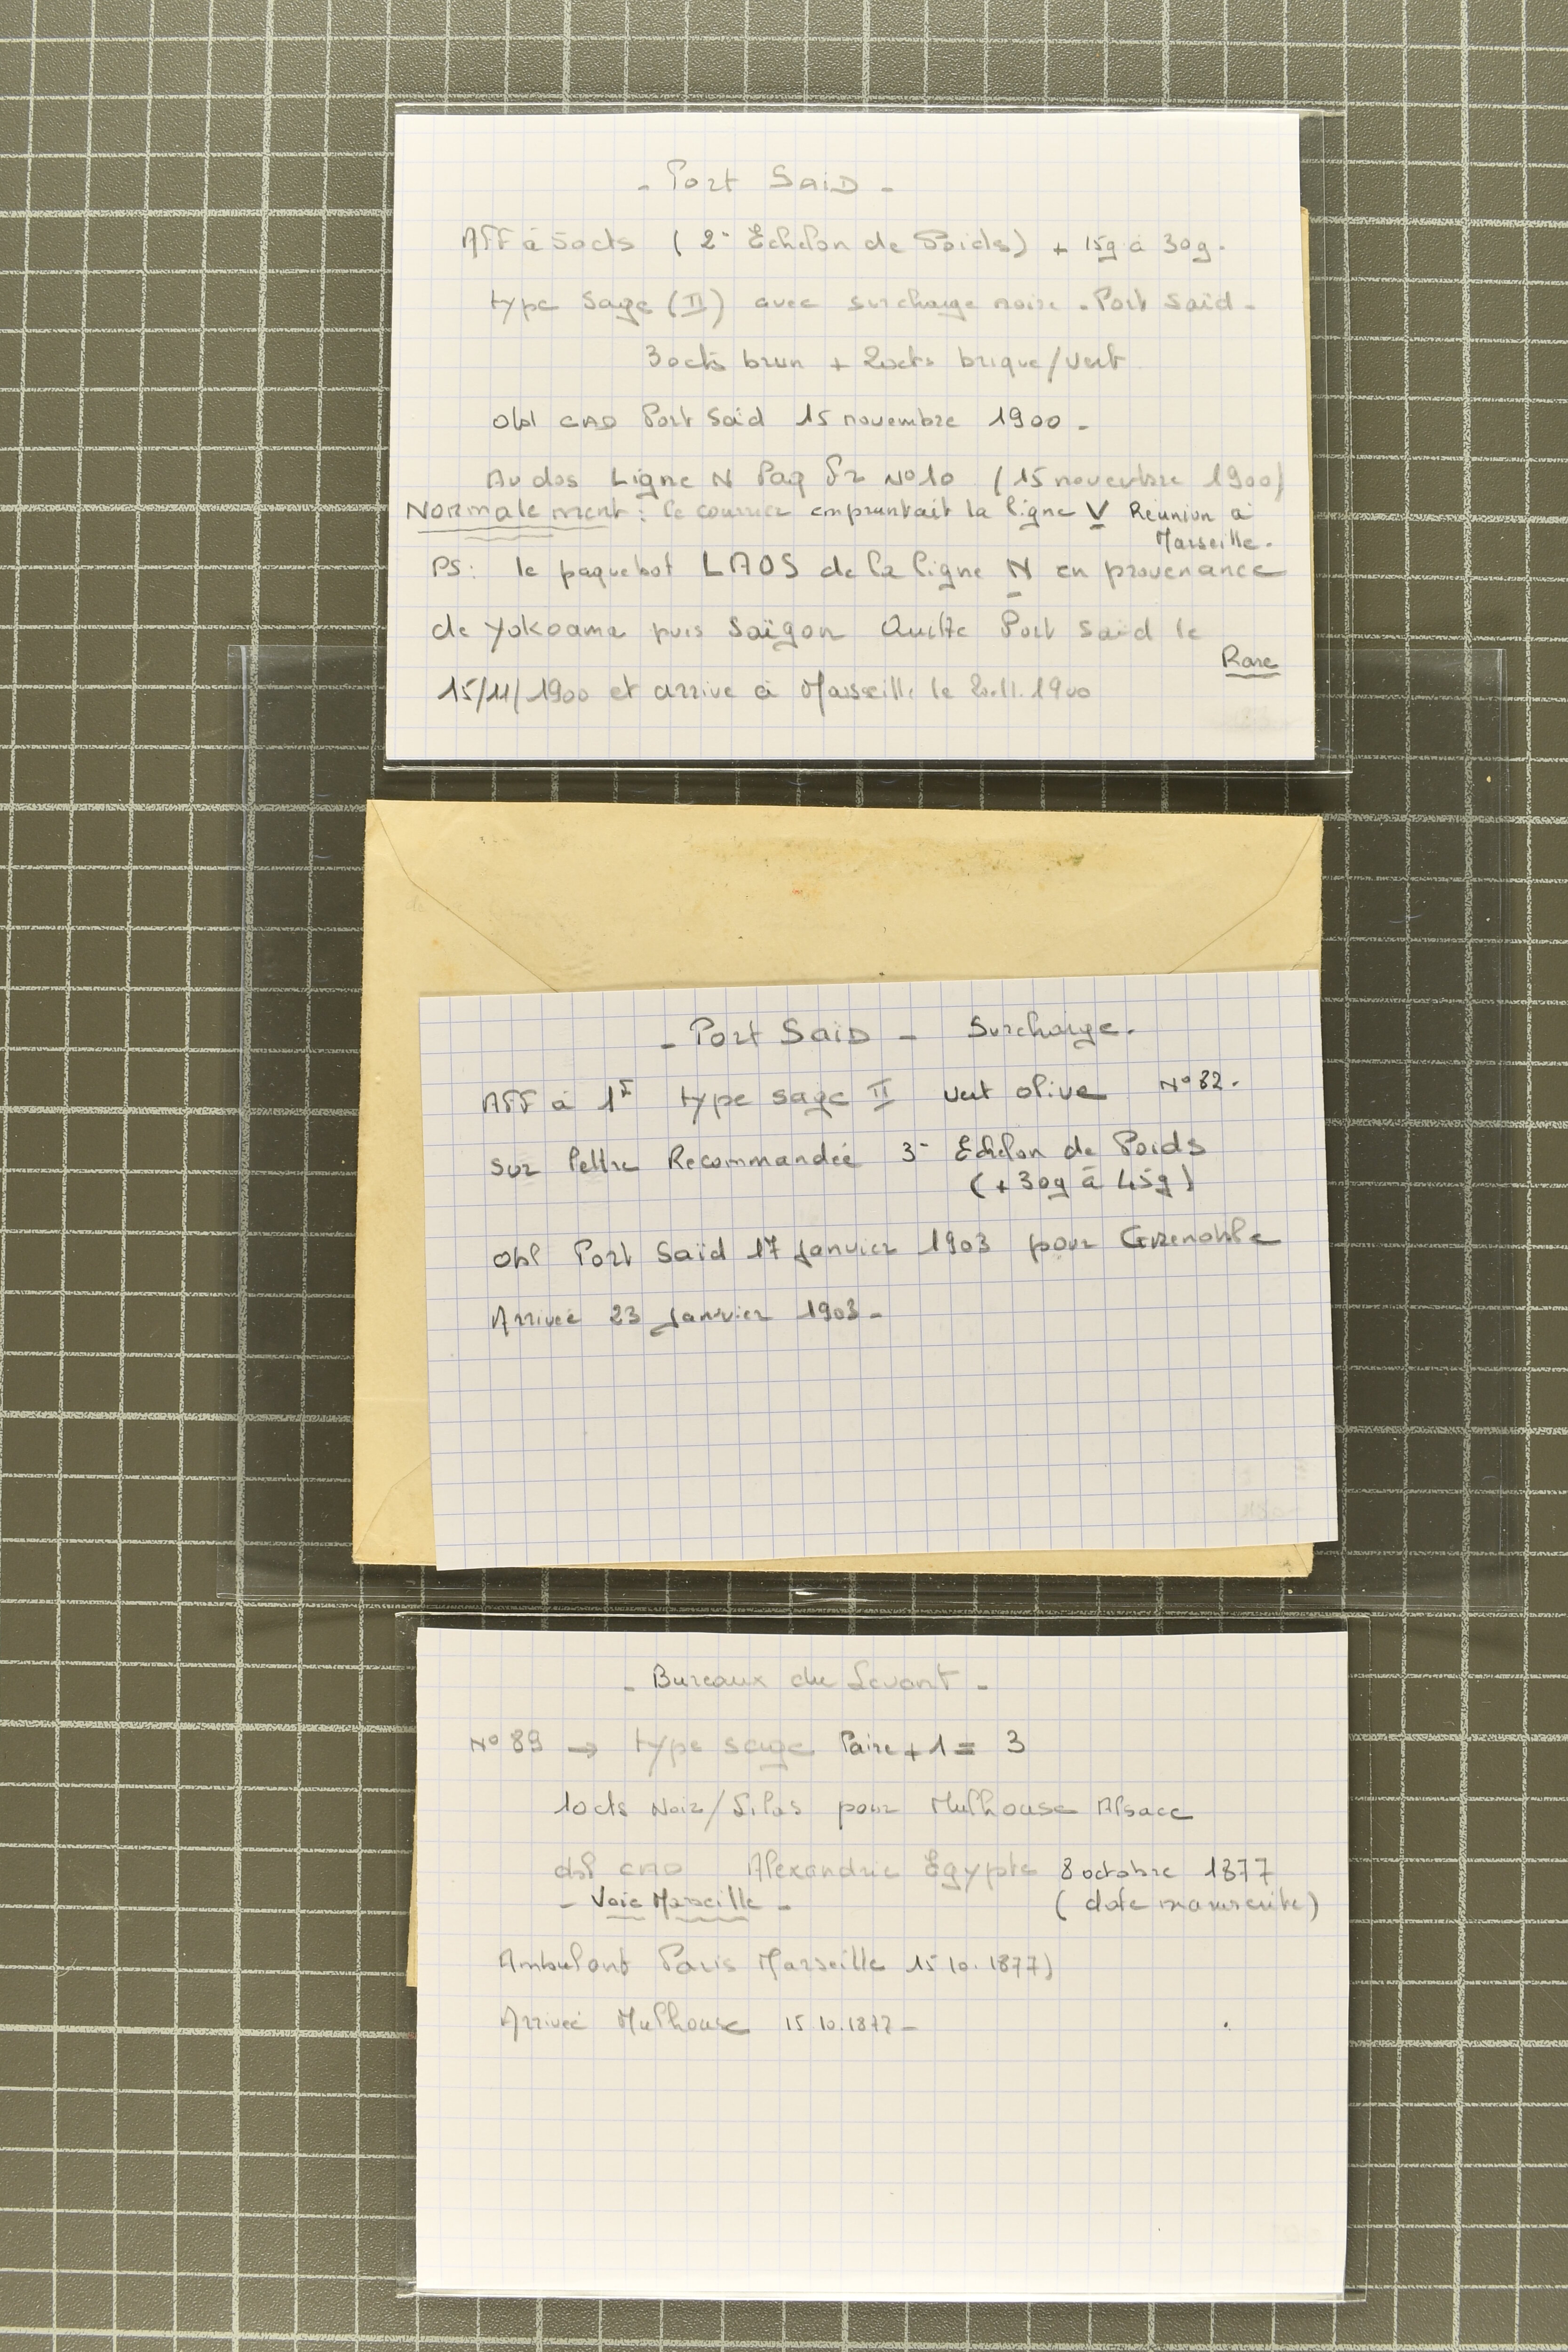 - Port SAiD -
Aff à 50cts ( 2e Echelon de Poids) + 15g à 30g.
type Sage (II) avec surcharge noire - Port Saïd -
30cts brun + 20cts brique/vert
Obl CAD Port Saïd 15 novembre 1900 -
Au dos Ligne N Paq Fr No10 (15 novembre 1900)
Normalement : le courrier empruntait la ligne V Réunion à
Marseille.
PS: le paquebot LAOS de la ligne N en provenance
de Yokoama puis Saïgon Quitte Port Saïd le
Rare
15/11/1900 et arrive à Marseille le 20.11.1900
- Port SAiD - Surcharge.
Aff à 1F type sage II vert olive No 82.
sur lettre Recommandée 3e Echelon de Poids
(+ 30g à 45g)
Obl Port Saïd 17 Janvier 1903 pour Grenoble
Arrivée 23 Janvier 1903 -
- Bureaux du Levant -
No 89 → type sage Paire + 1 = 3
10cts Noir/Lilas pour Mulhouse Alsace
obl CAD Alexandrie Egypte 8 octobre 1877
- Voie Marseille - ( date manuscrite)
Ambulant Paris Marseille 15 10. 1877)
Arrivée Mulhouse 15.10.1877 -